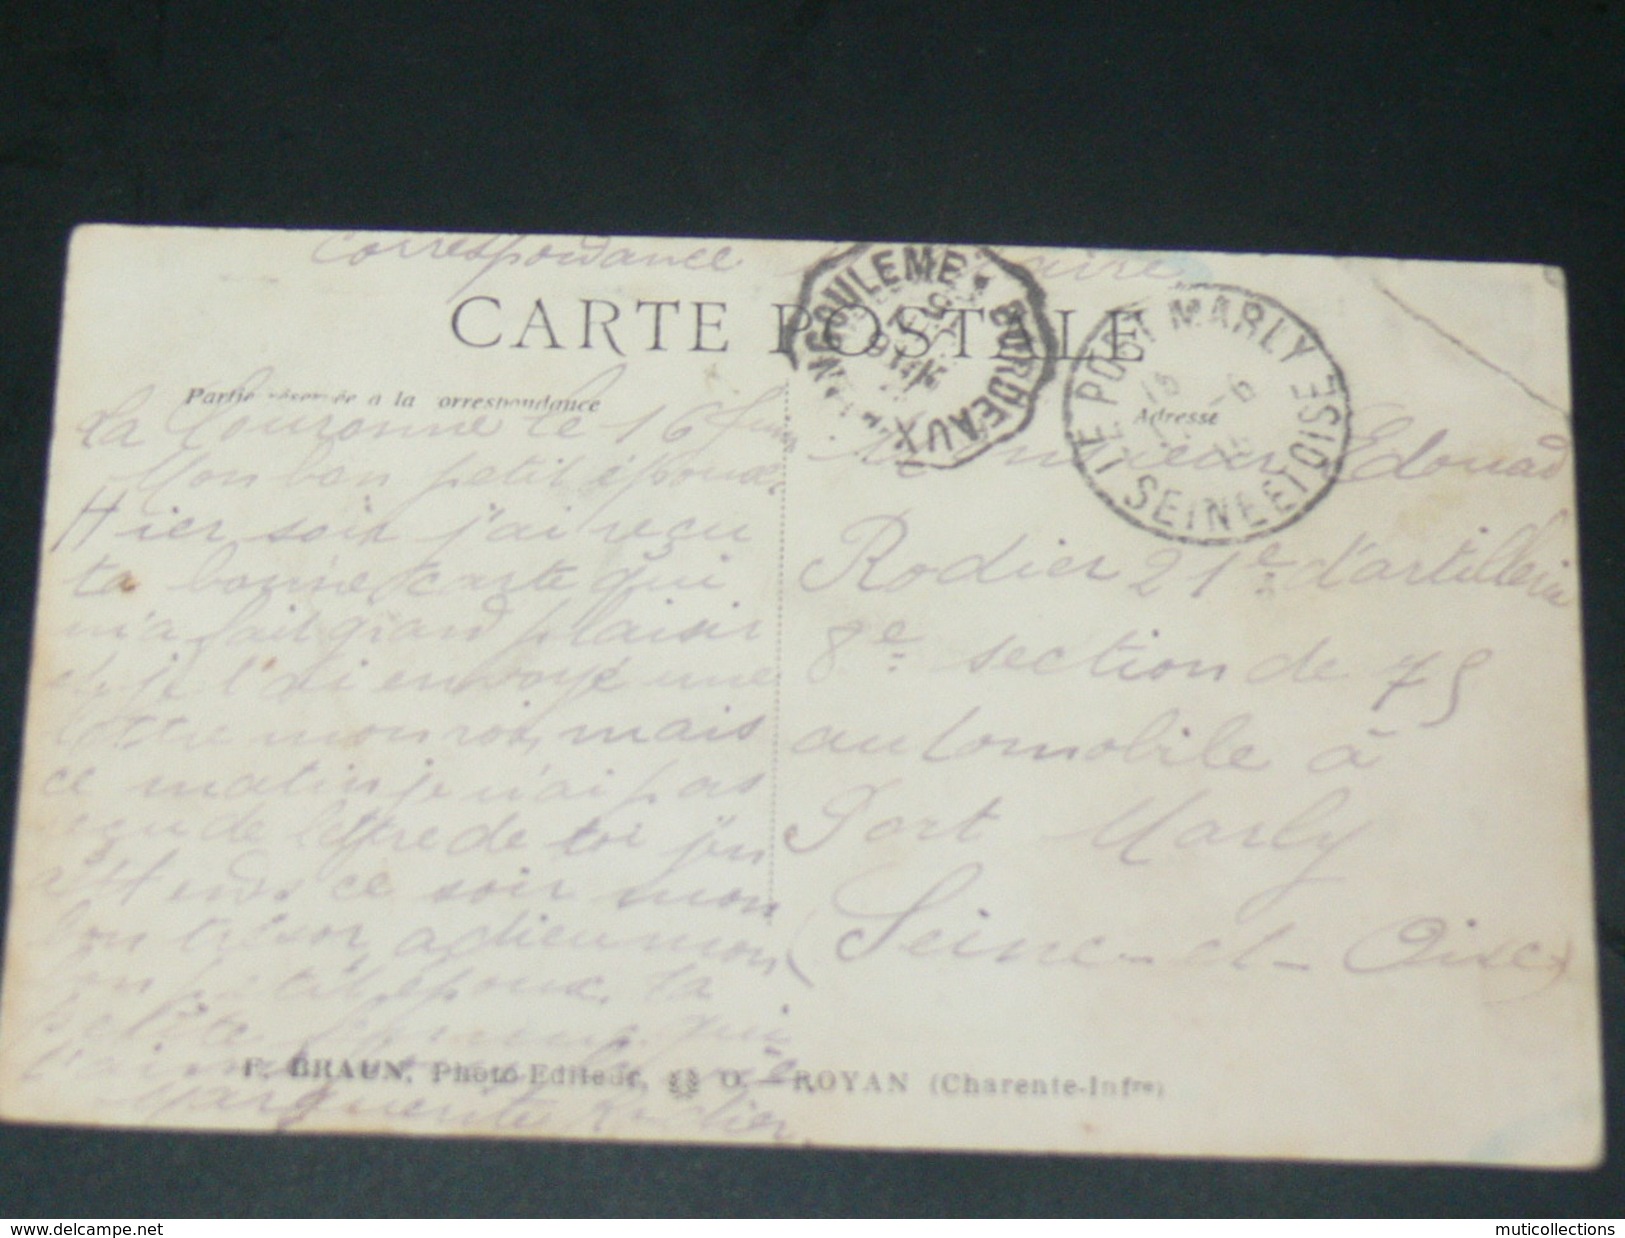 Correspondance
CARTE POSTALE
ANGOULEME * BORDEAUX
LE PORT MARLY
SEINE ET OISE
Partie réservée à la correspondance
Adresse
La Couronne le 16 Juin
Mon bon petit époux
Hier soir j'ai reçu
ta bonne carte qui
m'a fait grand plaisir
et je t'ai envoyé une
lettre mais
ce matin je n'ai pas
reçu de lettre de toi j'en
attends ce soir mon
bon trésor adieu mon
bon petit époux, ta
petite femme qui
t'aime
Marguerite Rodier
Monsieur Edouard
Rodier 21e d'artillerie
8e section de 75
automobile à
Port Marly
(Seine-et-Oise)
F. BRAUN, Photo-Editeur, ROYAN (Charente-Infre)
www.delcampe.net
muticollections